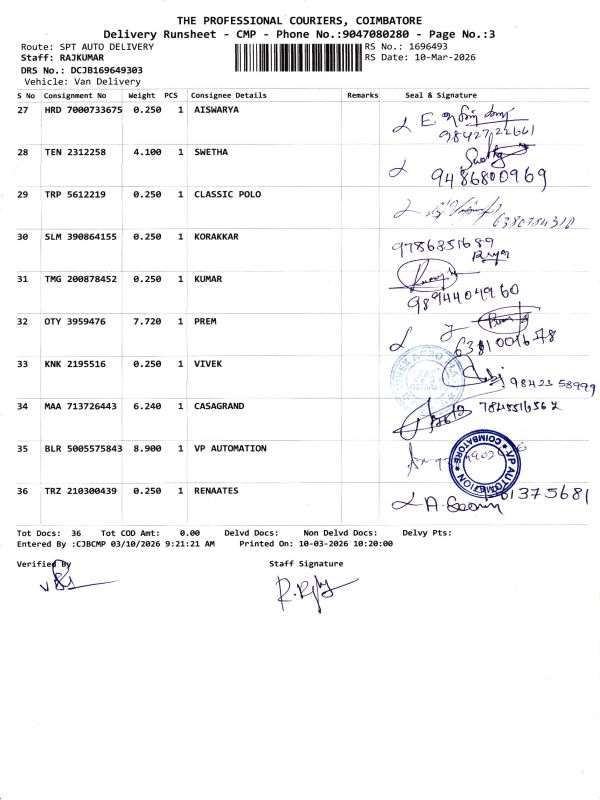 THE PROFESSIONAL COURIERS, COIMBATORE
Delivery Runsheet - CMP - Phone No.:9047080280 - Page No.:3
Route: SPT AUTO DELIVERY RS No.: 1696493
Staff: RAJKUMAR RS Date: 10-Mar-2026
DRS No.: DCJB169649303
Vehicle: Van Delivery
S No Consignment No Weight PCS Consignee Details Remarks Seal & Signature
27 HRD 7000733675 0.250 1 AISWARYA
9842722661
28 TEN 2312258 4.100 1 SWETHA
9486800969
29 TRP 5612219 0.250 1 CLASSIC POLO
6380784310
30 SLM 390864155 0.250 1 KORAKKAR 9786351689
Priya
31 TMG 200878452 0.250 1 KUMAR
9894404960
32 OTY 3959476 7.720 1 PREM
6381001678
33 KNK 2195516 0.250 1 VIVEK
9842358999
34 MAA 713726443 6.240 1 CASAGRAND
35 BLR 5005575843 8.900 1 VP AUTOMATION
VP AUTOMATION * COIMBATORE *
36 TRZ 210300439 0.250 1 RENAATES
61375681
Tot Docs: 36 Tot COD Amt: 0.00 Delvd Docs: Non Delvd Docs: Delvy Pts:
Entered By :CJBCMP 03/10/2026 9:21:21 AM Printed On: 10-03-2026 10:20:00
Verified By Staff Signature